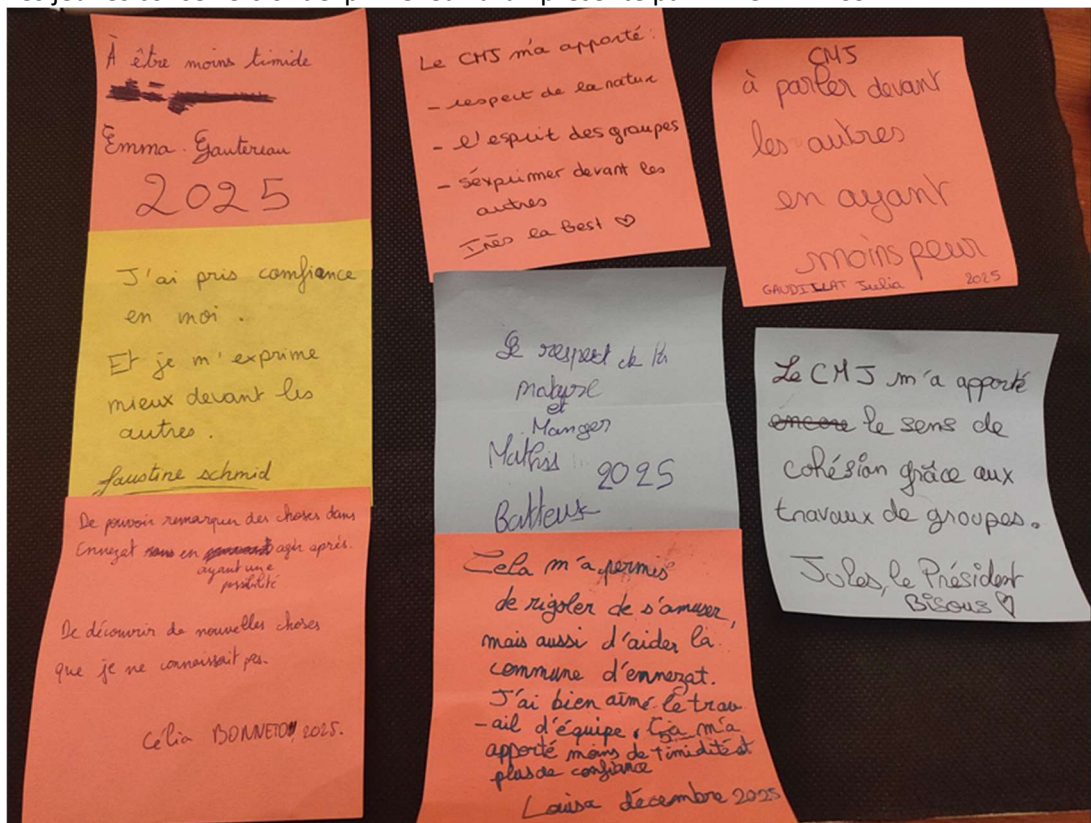 À être moins timide
Emma Gautereau
2025
J'ai pris comfiance
en moi.
Et je m'exprime
mieux devant les
autres.
faustine schmid
De pouvoir remarquer des choses dans
Ennezat en agir après.
ayant une
possibilité
De découvrir de nouvelles choses
que je ne connaissait pas.
Célia BONNETON 2025.
Le CMJ m'a apporté :
- respect de la nature
- l'esprit des groupes
- s'éxprimer devant les
autres
Inès la Best ♡
Le respect de la
et
Manger
Mathis 2025
Batteux
Cela m'a permis
de rigoler de s'amuser,
mais aussi d'aider la
commune d'ennezat.
J'ai bien aimé le trav
-ail d'équipe. Ça m'a
apporté moins de timidité et
plus de confiance
Louisa décembre 2025
CMJ
à parler devant
les autres
en ayant
moins peur
GAUDILLAT Julia 2025
Le CMJ m'a apporté
encore le sens de
cohésion grâce aux
travaux de groupes.
Jules, le Président
Bisous ♡